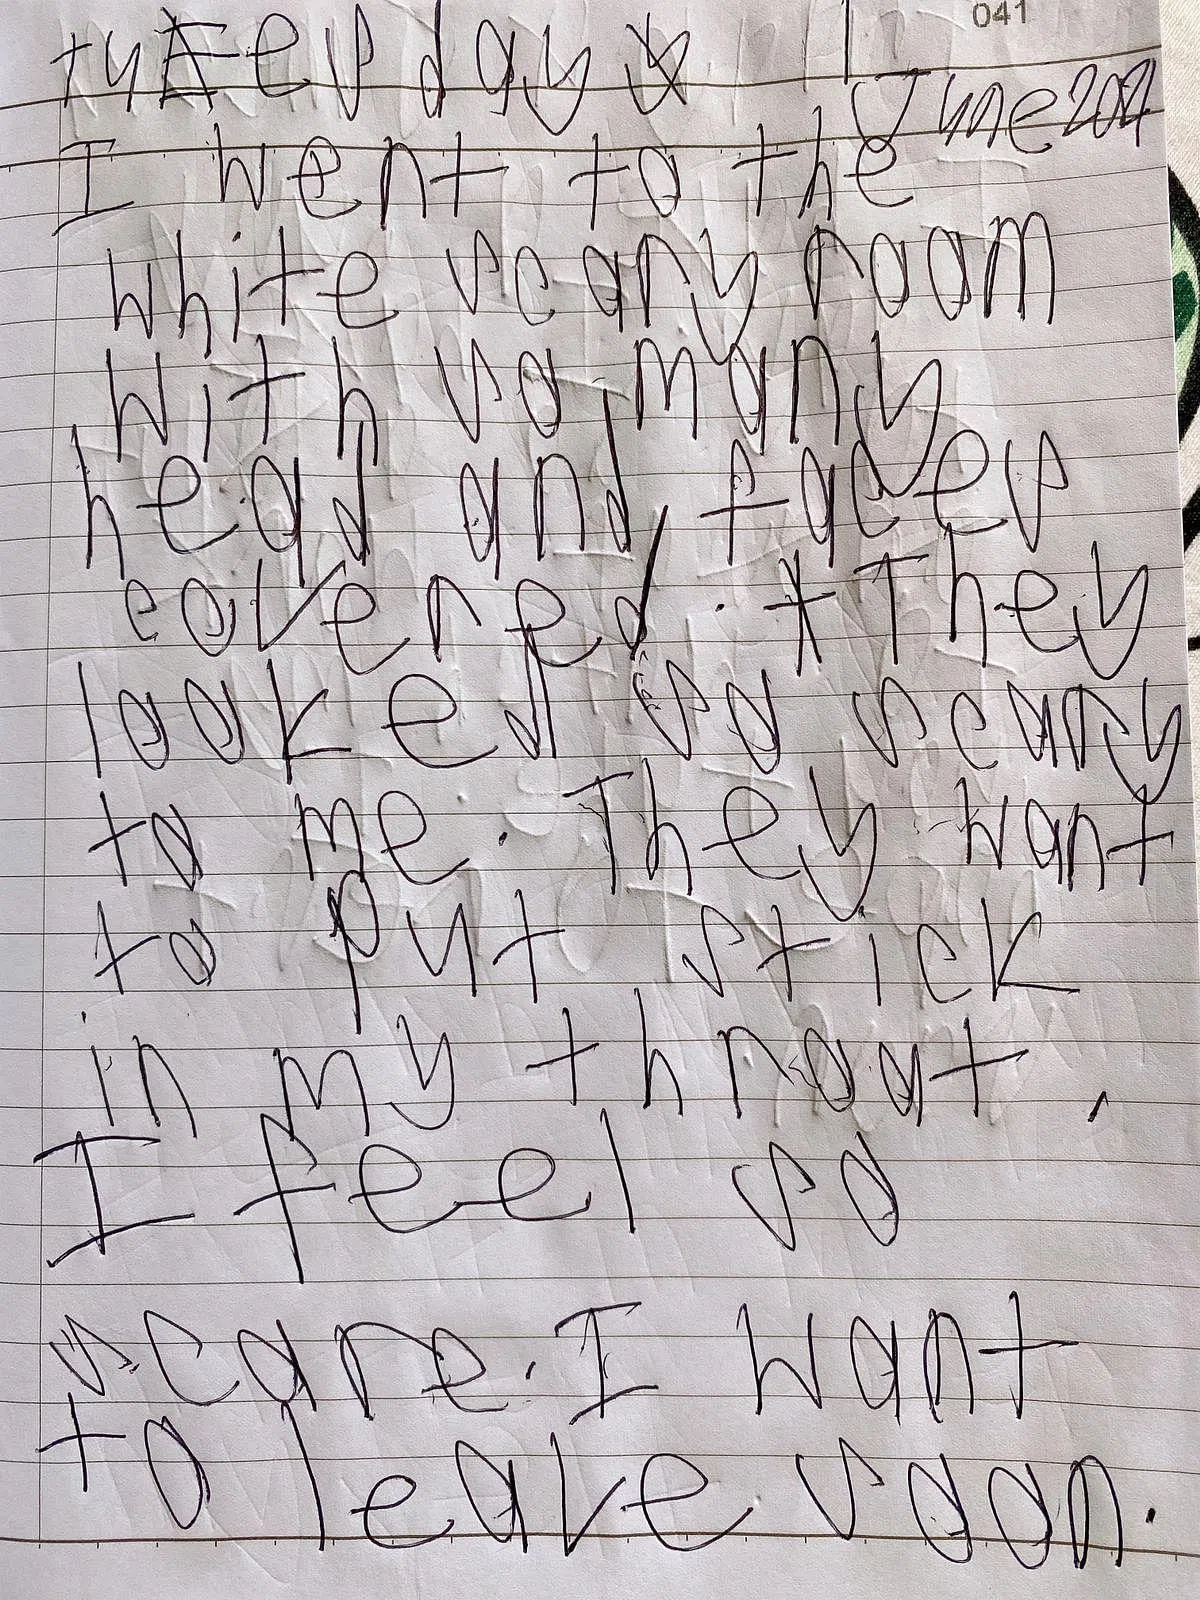 041
tuesday 1
June 2021
I went to the
white scary room
with so many
head and faces
covered. They
looked so scary
to me. They want
to put stick
in my throat.
I feel so
scare. I want
to leave soon.